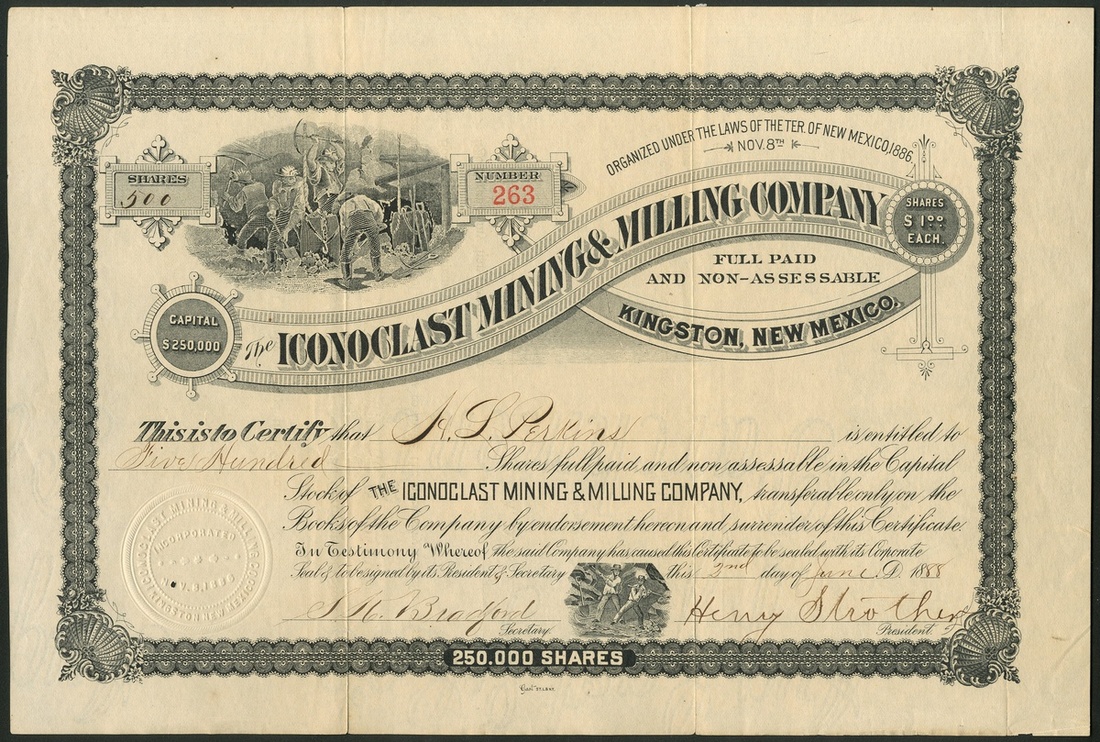 ORGANIZED UNDER THE LAWS OF THE TER. OF NEW MEXICO, 1886,
NOV. 8TH
SHARES
500
NUMBER
263
SHARES
$1.00
EACH.
CAPITAL
$250,000
The ICONOCLAST MINING & MILLING COMPANY
FULL PAID
AND NON-ASSESSABLE
KINGSTON, NEW MEXICO.
This is to Certify that H. L. Perkins is entitled to
Five Hundred Shares full paid and non assessable in the Capital
Stock of THE ICONOCLAST MINING & MILLING COMPANY, transferable only on the
Books of the Company by endorsement hereon and surrender of this Certificate.
In Testimony Whereof the said Company has caused this Certificate to be sealed with its Corporate
Seal & to be signed by its President & Secretary this 2nd day of June A.D. 1888
ICONOCLAST MINING & MILLING CO.
INCORPORATED
NOV. 8, 1886
KINGSTON, NEW MEXICO
Bradford
Secretary.
Henry Strother
President.
250.000 SHARES